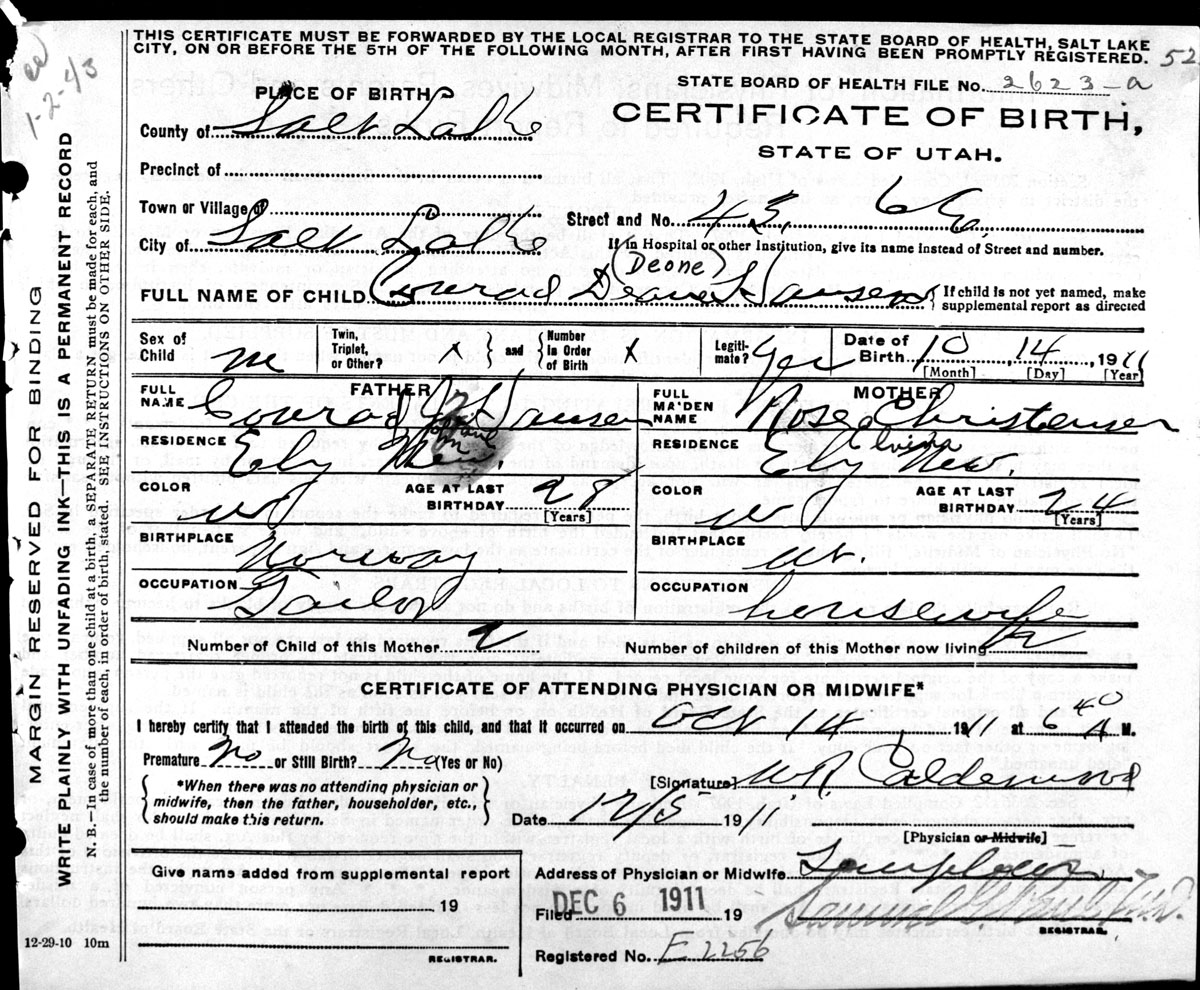 THIS CERTIFICATE MUST BE FORWARDED BY THE LOCAL REGISTRAR TO THE STATE BOARD OF HEALTH, SALT LAKE
CITY, ON OR BEFORE THE 5TH OF THE FOLLOWING MONTH, AFTER FIRST HAVING BEEN PROMPTLY REGISTERED. 52
1-2-43
STATE BOARD OF HEALTH FILE No. 2623-a
PLACE OF BIRTH
CERTIFICATE OF BIRTH,
STATE OF UTAH.
County of Salt Lake
Precinct of
Town or Village of
Street and No. 45, 6 E.
City of Salt Lake
If in Hospital or other Institution, give its name instead of Street and number.
(Deone)
FULL NAME OF CHILD Conrad Deane Hansen { If child is not yet named, make supplemental report as directed
Sex of Child m Twin, Triplet, or Other? X and { Number in Order of Birth X Legitimate? Yes Date of Birth 10 14, 1911
[Month] [Day] [Year]
FATHER MOTHER
FULL NAME Conrad J Hansen FULL MAIDEN NAME Rose Christensen
Elvina
RESIDENCE Ely Nev. RESIDENCE Ely Nev.
COLOR W AGE AT LAST BIRTHDAY 28 [Years] COLOR W AGE AT LAST BIRTHDAY 24 [Years]
BIRTHPLACE Norway BIRTHPLACE Ut.
OCCUPATION Tailor OCCUPATION housewife
Number of Child of this Mother 2 Number of children of this Mother now living 2
CERTIFICATE OF ATTENDING PHYSICIAN OR MIDWIFE*
I hereby certify that I attended the birth of this child, and that it occurred on Oct 14 1911 at 6 40 A M.
Premature No or Still Birth? No (Yes or No)
*When there was no attending physician or midwife, then the father, householder, etc., should make this return.
[Signature] W.R. Calderwood
Date 12/5 19
[Physician or Midwife]
Give name added from supplemental report
19
REGISTRAR.
Address of Physician or Midwife Templeton
Filed DEC 6 1911 19
REGISTRAR.
12-29-10 10m
Registered No. E 2256
MARGIN RESERVED FOR BINDING
WRITE PLAINLY WITH UNFADING INK—THIS IS A PERMANENT RECORD
N. B.—In case of more than one child at a birth, a SEPARATE RETURN must be made for each, and
the number of each, in order of birth stated. SEE INSTRUCTIONS ON OTHER SIDE.